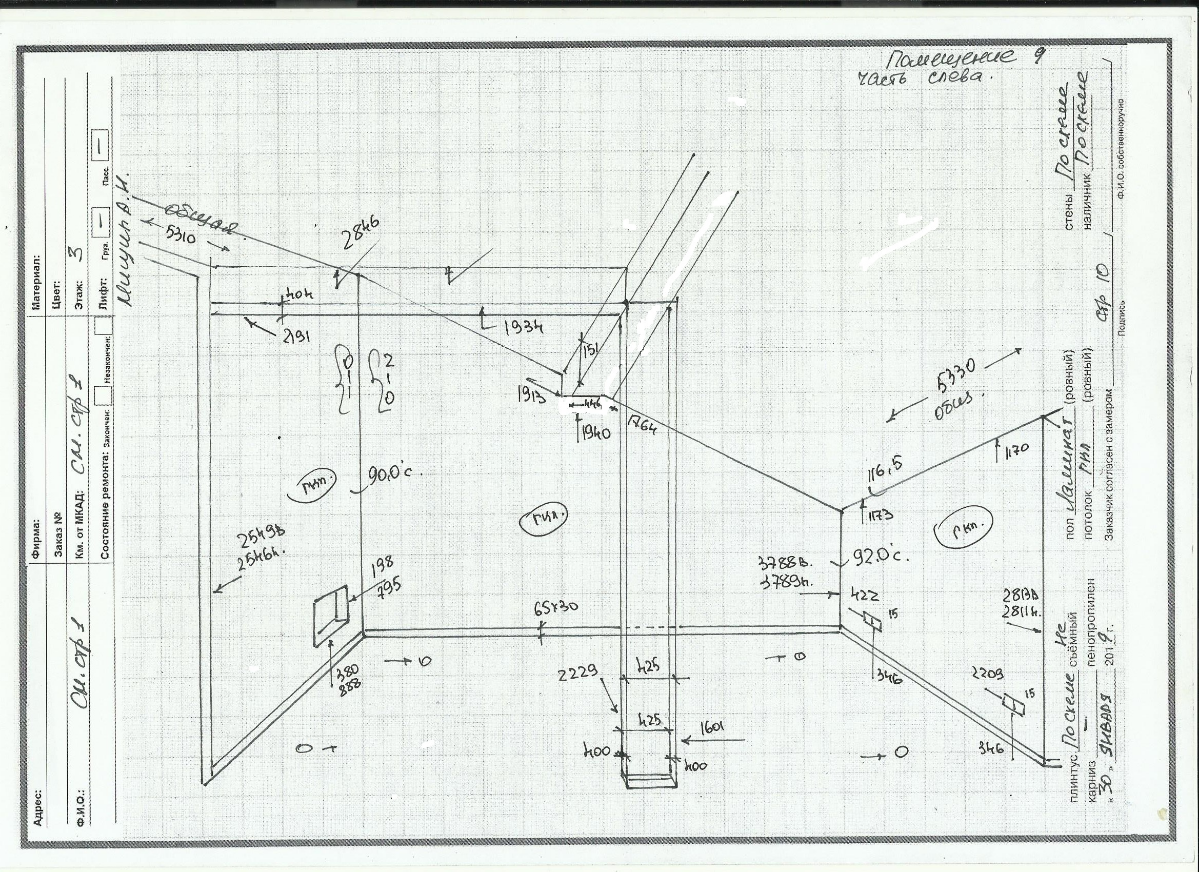 Помещение 9
часть слева.
Материал:
Цвет:
Этаж: 3
Лифт: Груз. — Пасс. —
Фирма:
Заказ №
Км. от МКАД: см. стр 1
Состояние ремонта: Закончен: Незакончен:
Адрес:
Ф.И.О.: см. стр 1
общая
5310
2846
404
2191
1934
151
1913
446
1940
1764
5330
общ.
0
1
2
1
0
116,5
1170
1173
гкл.
90.0°с.
гкл.
гкл.
2549в
2546н.
198
795
65х30
3788в.
3789н.
92.0°с.
422
15
2813в
2811н.
380
888
0
2229
425
0
346
2209
15
425
1601
0
400
400
0
346
стены По схеме
наличник По схеме
Ф.И.О. собственноручно
стр 10
Подпись
пол Ламинат (ровный)
потолок гкл (ровный)
Заказчик согласен с замером
плинтус По схеме не съёмный
карниз — пенопропилен
« 30 » января 2019 г.